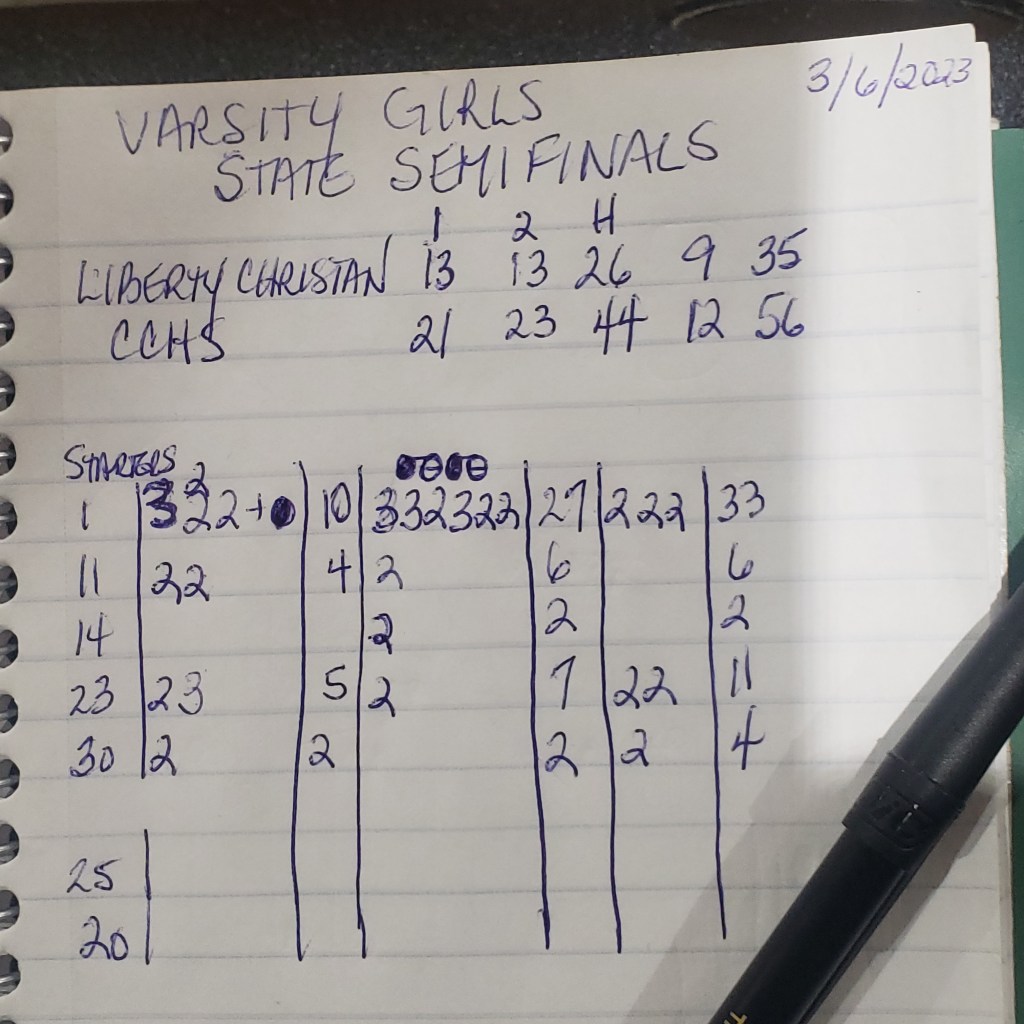 3/6/2023
VARSITY GIRLS
STATE SEMIFINALS
1 2 H
LIBERTY CHRISTAN 13 13 26 9 35
CCHS 21 23 44 12 56
STARTERS
1 3 2 2 2 + 10 3 3 2 3 2 2 27 2 2 2 33
11 2 2 4 2 6 6
14 2 2 2
23 2 3 5 2 7 2 2 11
30 2 2 2 2 4
25
20